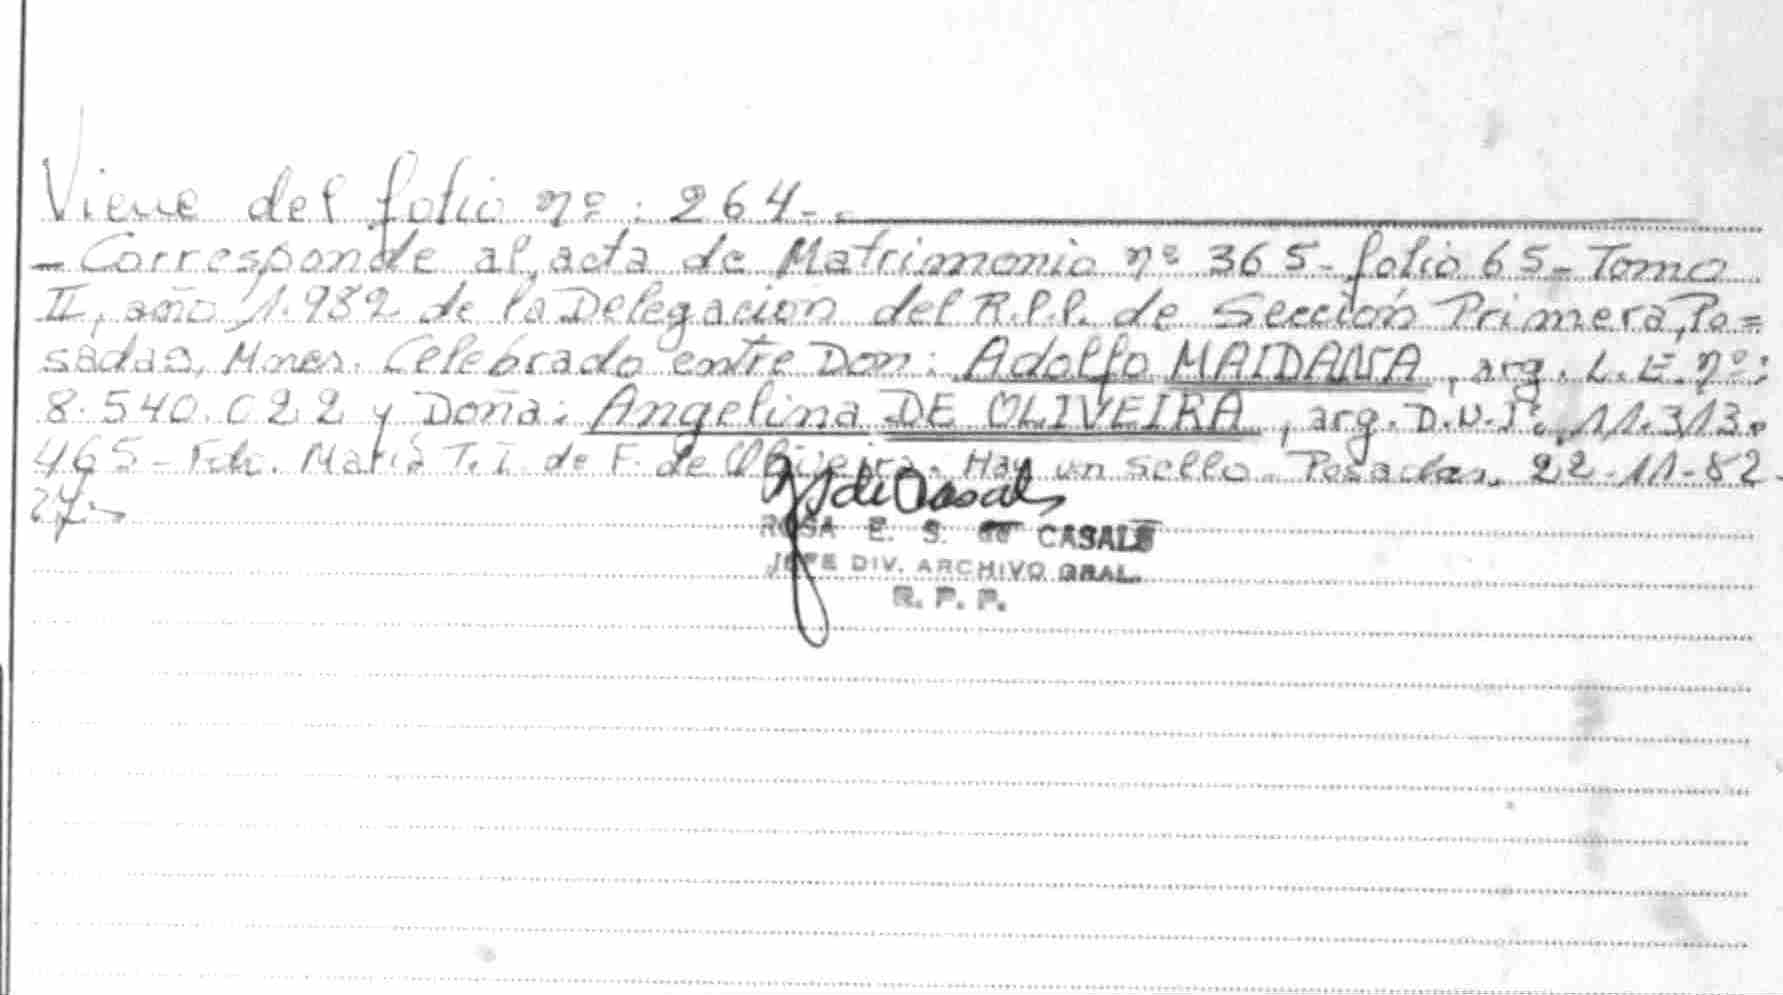 Viene del folio nº: 264-.
- Corresponde al acta de Matrimonio nº 365- folio 65- Tomo
II, año 1.982 de la Delegación del R.P.P. de Sección Primera, Po=
sadas, Mnes. Celebrado entre Don: Adolfo MAIDANA, arg. L.E. nº:
8.540.022 y Doña: Angelina DE OLIVEIRA, arg. D.N.I: 11.313.
465- Fdo. María T. I. de F. de Oliveira. Hay un sello- Posadas, 22-11-82-
ROSA E. S. de CASALS
JEFE DIV. ARCHIVO GRAL.
R. P. P.